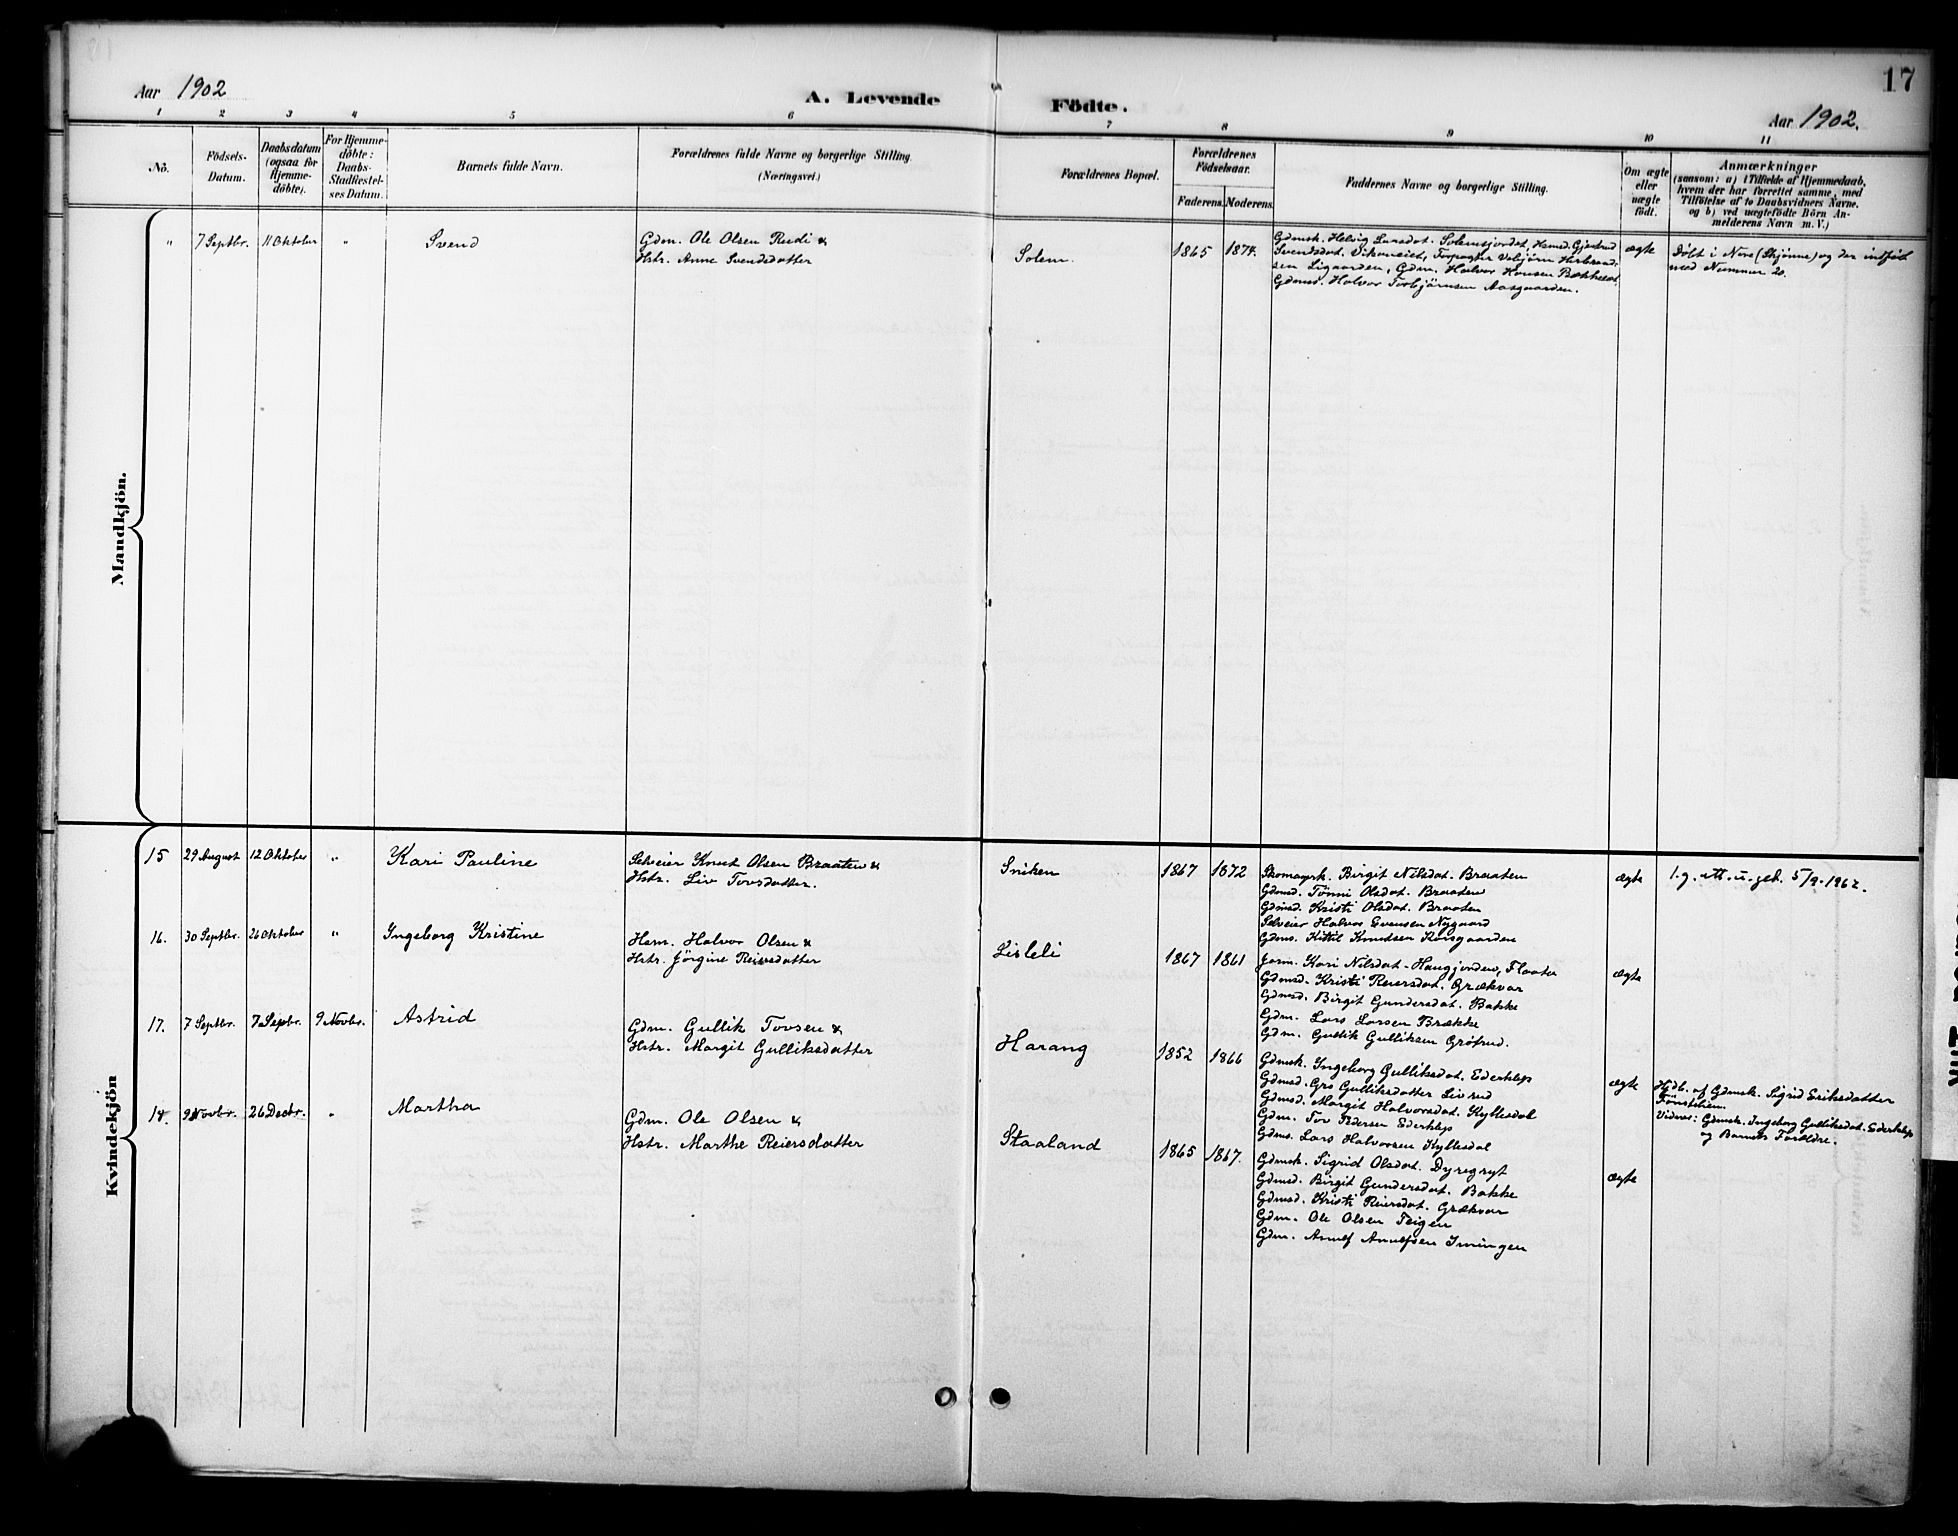 17
Aar 1902
A. Levende Födte.
Aar 1902.
1 2 3 4 5 6 7 8 9 10 11
No.
Födsels-
Datum.
Daabsdatum
(ogsaa for
Hjemme-
döbte).
For Hjemme-
döbte:
Daabs-
Stadfæstel-
ses Datum.
Barnets fulde Navn.
Forældrenes fulde Navne og borgerlige Stilling.
(Næringsvei.)
Forældrenes Bopæl.
Forældrenes
Födselsaar.
Faderens. Moderens.
Faddernes Navne og borgerlige Stilling.
Om ægte
eller
uægte
födt.
Anmærkninger
(saasom: a) i Tilfælde af Hjemmedaab,
hvem der har forrettet samme, med
Tilföielse af to Daabsvidners Navne,
og b) ved uægtefödte Börn An-
melderens Navn m. V.)
Mandkjön.
" 7 Septbr. 11 Oktober " Svend
Gdm. Ole Olsen Rudi &
Hstr. Anne Svendsdatter
Solem. 1865 1874.
Gdmsk. Helvig Larsdat. Solemsjordet, Hsmd. Gjertrud
Svendsdat. Vikoneiet, Forpagter Vebjörn Herbrand-
sen Ligaarden, Gdm. Halvor Hansen Bækkeset,
Gdmsd. Halvor Torbjörnsen Aasgaarden.
ægte
Döbt i Nore (Skjönne) og der indfört
med Nummer 20.
Kvindekjön
15 29 August 12 Oktober " Kari Pauline
Selveier Knut Olsen Braaten &
Hstr. Liv Torsdatter.
Sniken 1867 1872
Skomagrk. Birgit Nilsdat. Braaten
Gdmsd. Tönni Olsdat. Braaten
Gdmsd. Kristi Olsdat. Braaten
Selveier Halvor Evensen Nygaard
Gdms. Kittil Knudsen Korsgaarden
ægte
1.g. att. u. geb. 5/9-1962.
16. 30 Septbr. 26 Oktober " Ingeborg Kristine
Hsm. Halvor Olsen &
Hstr. Jörgine Reiersdatter
Lisleli 1867 1861
Jorm. Kari Nilsdat-Haugjorden, Flaata
Gdmsd. Kristi Reiersdat. Grækvar
Gdmsd. Birgit Gundersdat. Bakke
Gdm. Lars Larsen Brække
Gdm. Gullik Gulliksen Gröfrud.
ægte
17. 7 Septbr. 7 Septbr. 9 Novbr. Astrid
Gdm. Gullik Torsen &
Hstr. Margit Gulliksdatter
Harang 1852 1866
Gdmsk. Ingeborg Gulliksdat. Ederklep
Gdmsd. Gro Gulliksdatter Livrud
Gdmsd. Margit Halvorsdat. Kyllesdal
Gdm. Tor Pedersen Ederklep
Gdms. Lars Halvorsen Kyllesdal
ægte
Hjdb. af Gdmsk. Sigrid Eriksdatter
Tönstelien.
Vidner: Gdmsk. Ingeborg Gulliksdat. Ederklep
og Barnets Forældre.
18. 9 Novbr. 26 Decbr. " Martha
Gdm. Ole Olsen &
Hstr. Marthe Reiersdatter
Staaland 1865 1867.
Gdmsk. Sigrid Olsdat. Dyregryt
Gdmsd. Birgit Gundersdat. Bakke
Gdmsd. Kristi Reiersdat. Grækvar
Gdm. Ole Olsen Teigen
Gdm. Arnulf Arnulfsen Imingen
ægte